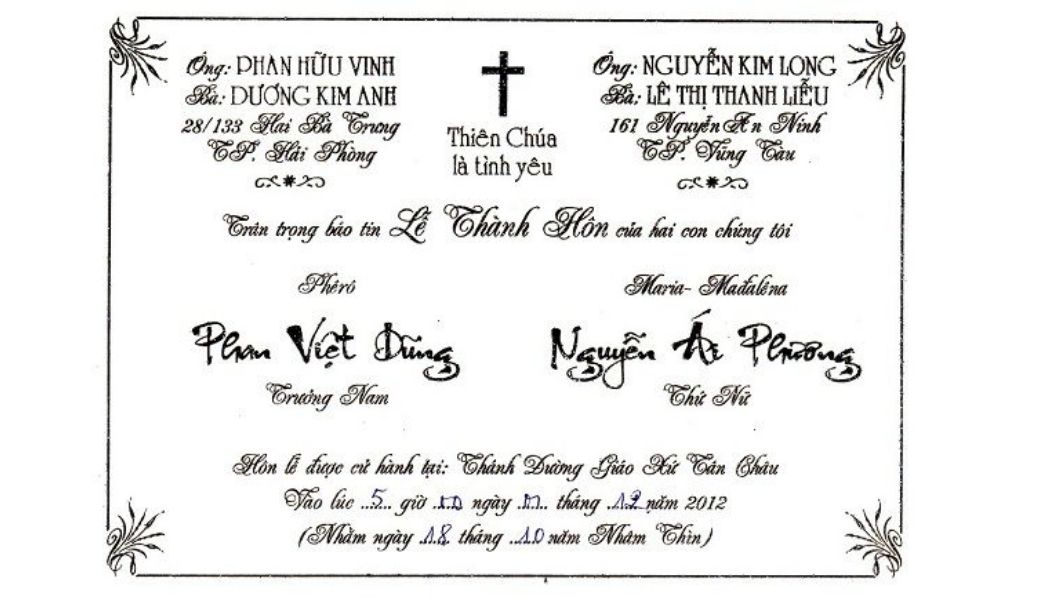 Ông: PHAN HỮU VINH
Bà: DƯƠNG KIM ANH
28/133 Hai Bà Trưng
TP. Hải Phòng
Thiên Chúa
là tình yêu
Ông: NGUYỄN KIM LONG
Bà: LÊ THỊ THANH LIỄU
161 Nguyễn An Ninh
TP. Vũng Tàu
Trân trọng báo tin Lễ Thành Hôn của hai con chúng tôi
Phêrô
Phan Việt Dũng
Trưởng Nam
Maria- Mađalêna
Nguyễn Ái Phương
Thứ Nữ
Hôn lễ được cử hành tại: Thánh Đường Giáo Xứ Tân Châu
Vào lúc 5 giờ ngày tháng 12 năm 2012
(Nhằm ngày 18 tháng 10 năm Nhâm Thìn)